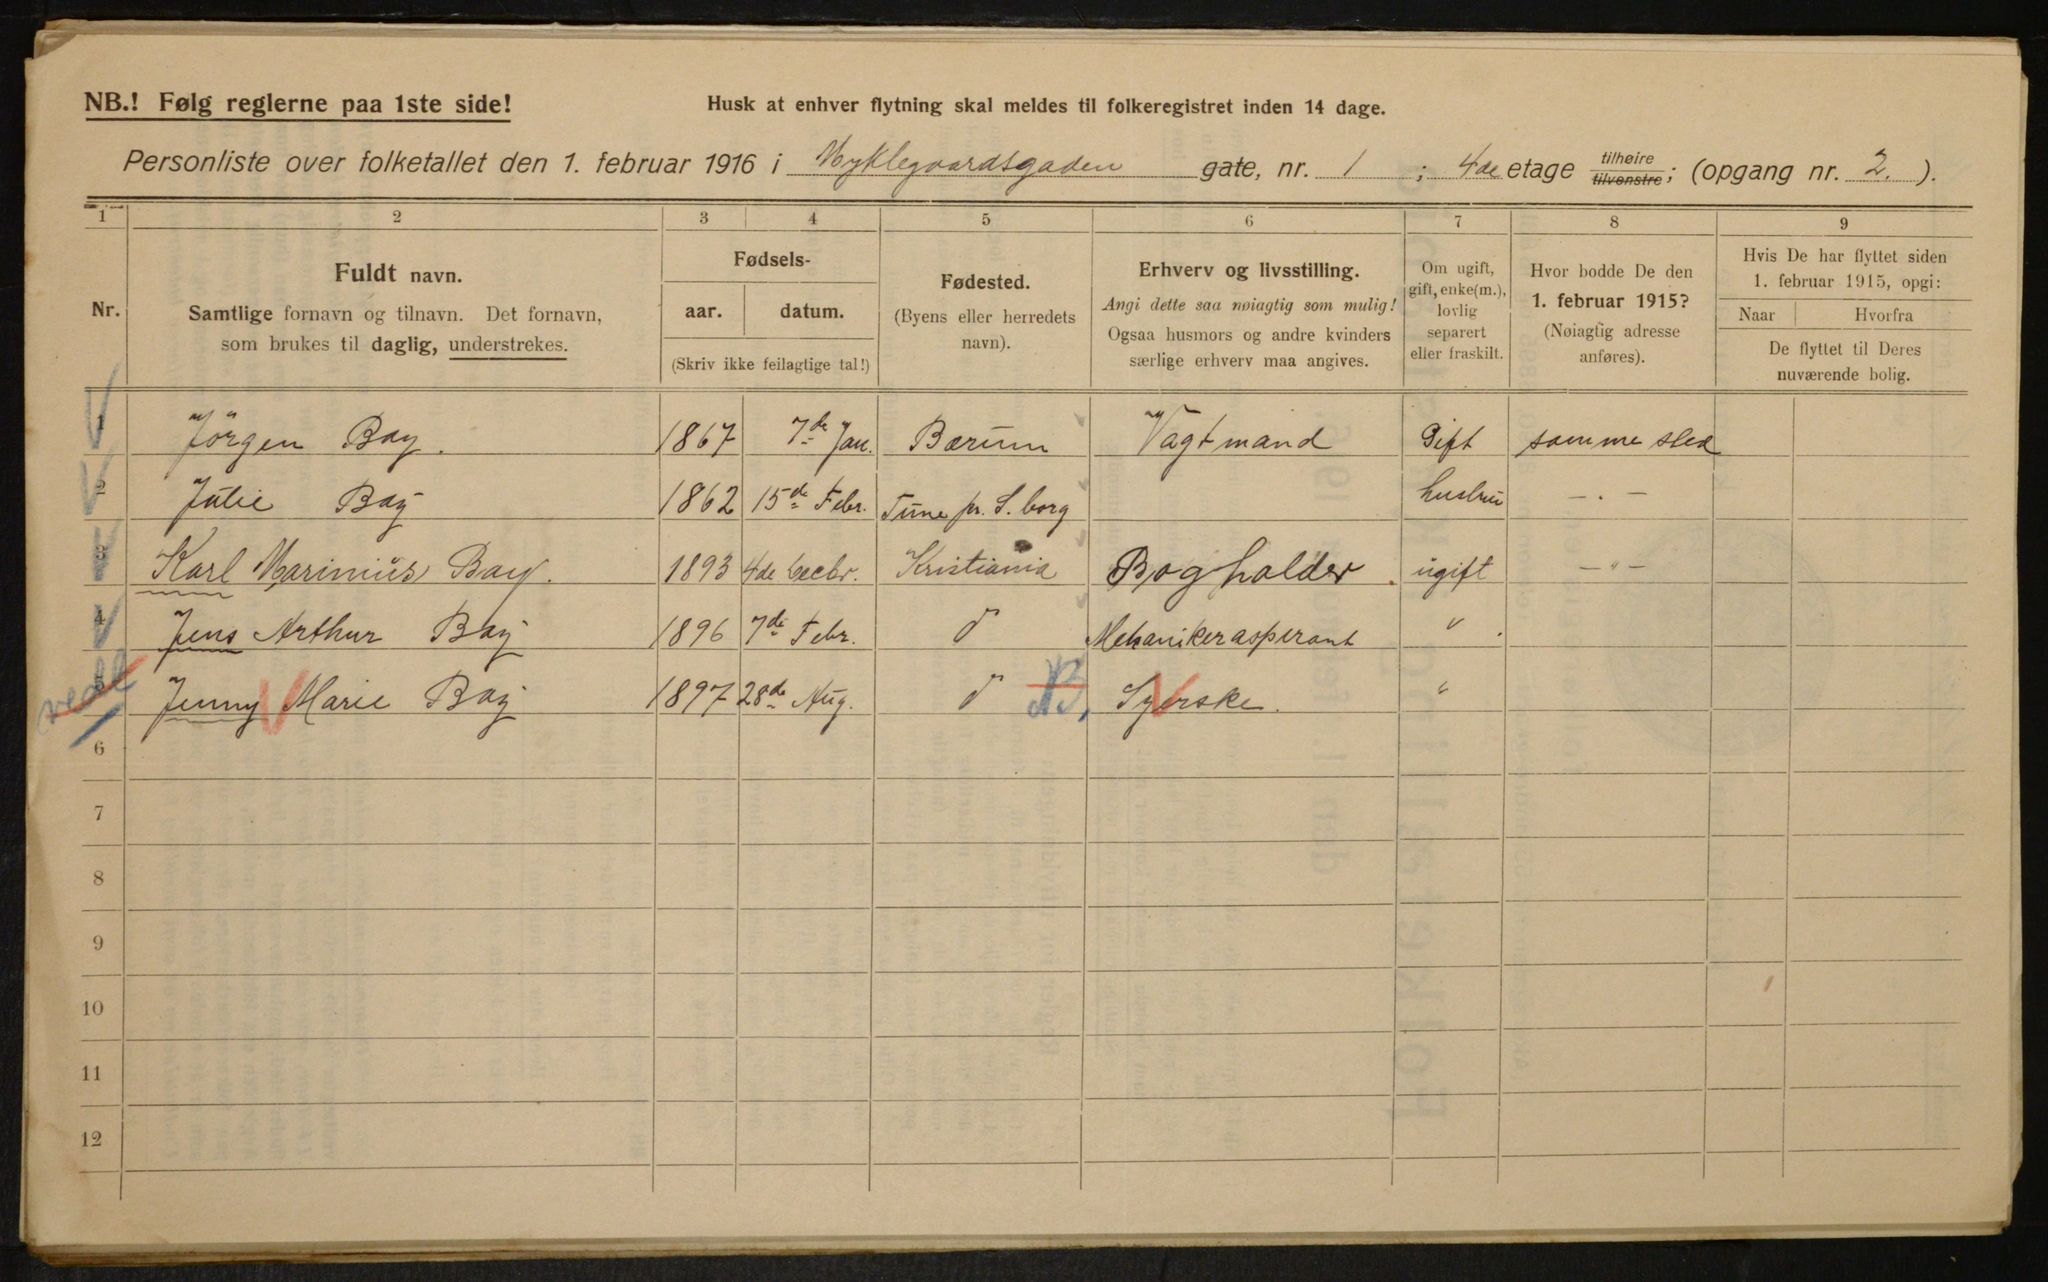 NB.! Følg reglerne paa 1ste side!
Husk at enhver flytning skal meldes til folkeregistret inden 14 dage.
Personliste over folketallet den 1. februar 1916 i Nyklegaardsgaden gate, nr. 1 ; 4de etage tilhøire tilvenstre; (opgang nr. 2. ).
1 2 3 4 5 6 7 8 9
Nr.
Fuldt navn.
Samtlige fornavn og tilnavn. Det fornavn,
som brukes til daglig, understrekes.
Fødsels-
aar. datum.
(Skriv ikke feilagtige tal!)
Fødested.
(Byens eller herredets
navn).
Erhverv og livsstilling.
Angi dette saa nøiagtig som mulig!
Ogsaa husmors og andre kvinders
særlige erhverv maa angives.
Om ugift,
gift, enke(m.),
lovlig
separert
eller fraskilt.
Hvor bodde De den
1. februar 1915?
(Nøiagtig adresse
anføres).
Hvis De har flyttet siden
1. februar 1915, opgi:
Naar Hvorfra
De flyttet til Deres
nuværende bolig.
1 Jörgen Bay. 1867 7de Jan. Bærum Vagtmand Gift samme sted
2 Julie Bay 1862 15de Febr. Tune pr. S. borg hustru — . —
3 Karl Marinius Bay. 1893 4de Decbr. Kristiania Bogholder. ugift — " —
4 Jens Arthur Bay 1896 7de Febr. d Mekanikeraspirant " .
5 Jenny Marie Bay 1897 28de Aug. d B. Syerske. "
6
7
8
9
10
11
12